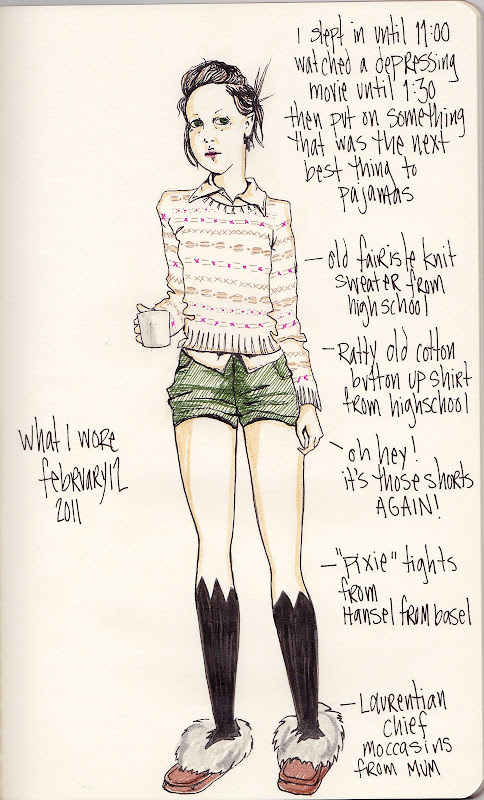 I slept in until 11:00
watched a depressing
movie until 1:30
then put on something
that was the next
best thing to
pajamas
- old fairisle knit
sweater from
highschool
- Ratty old cotton
button up shirt
from highschool
- oh hey!
it's those shorts
AGAIN!
- "pixie" tights
from
Hansel from basel
- Laurentian
chief
moccasins
from Mum
what I wore
february 12
2011